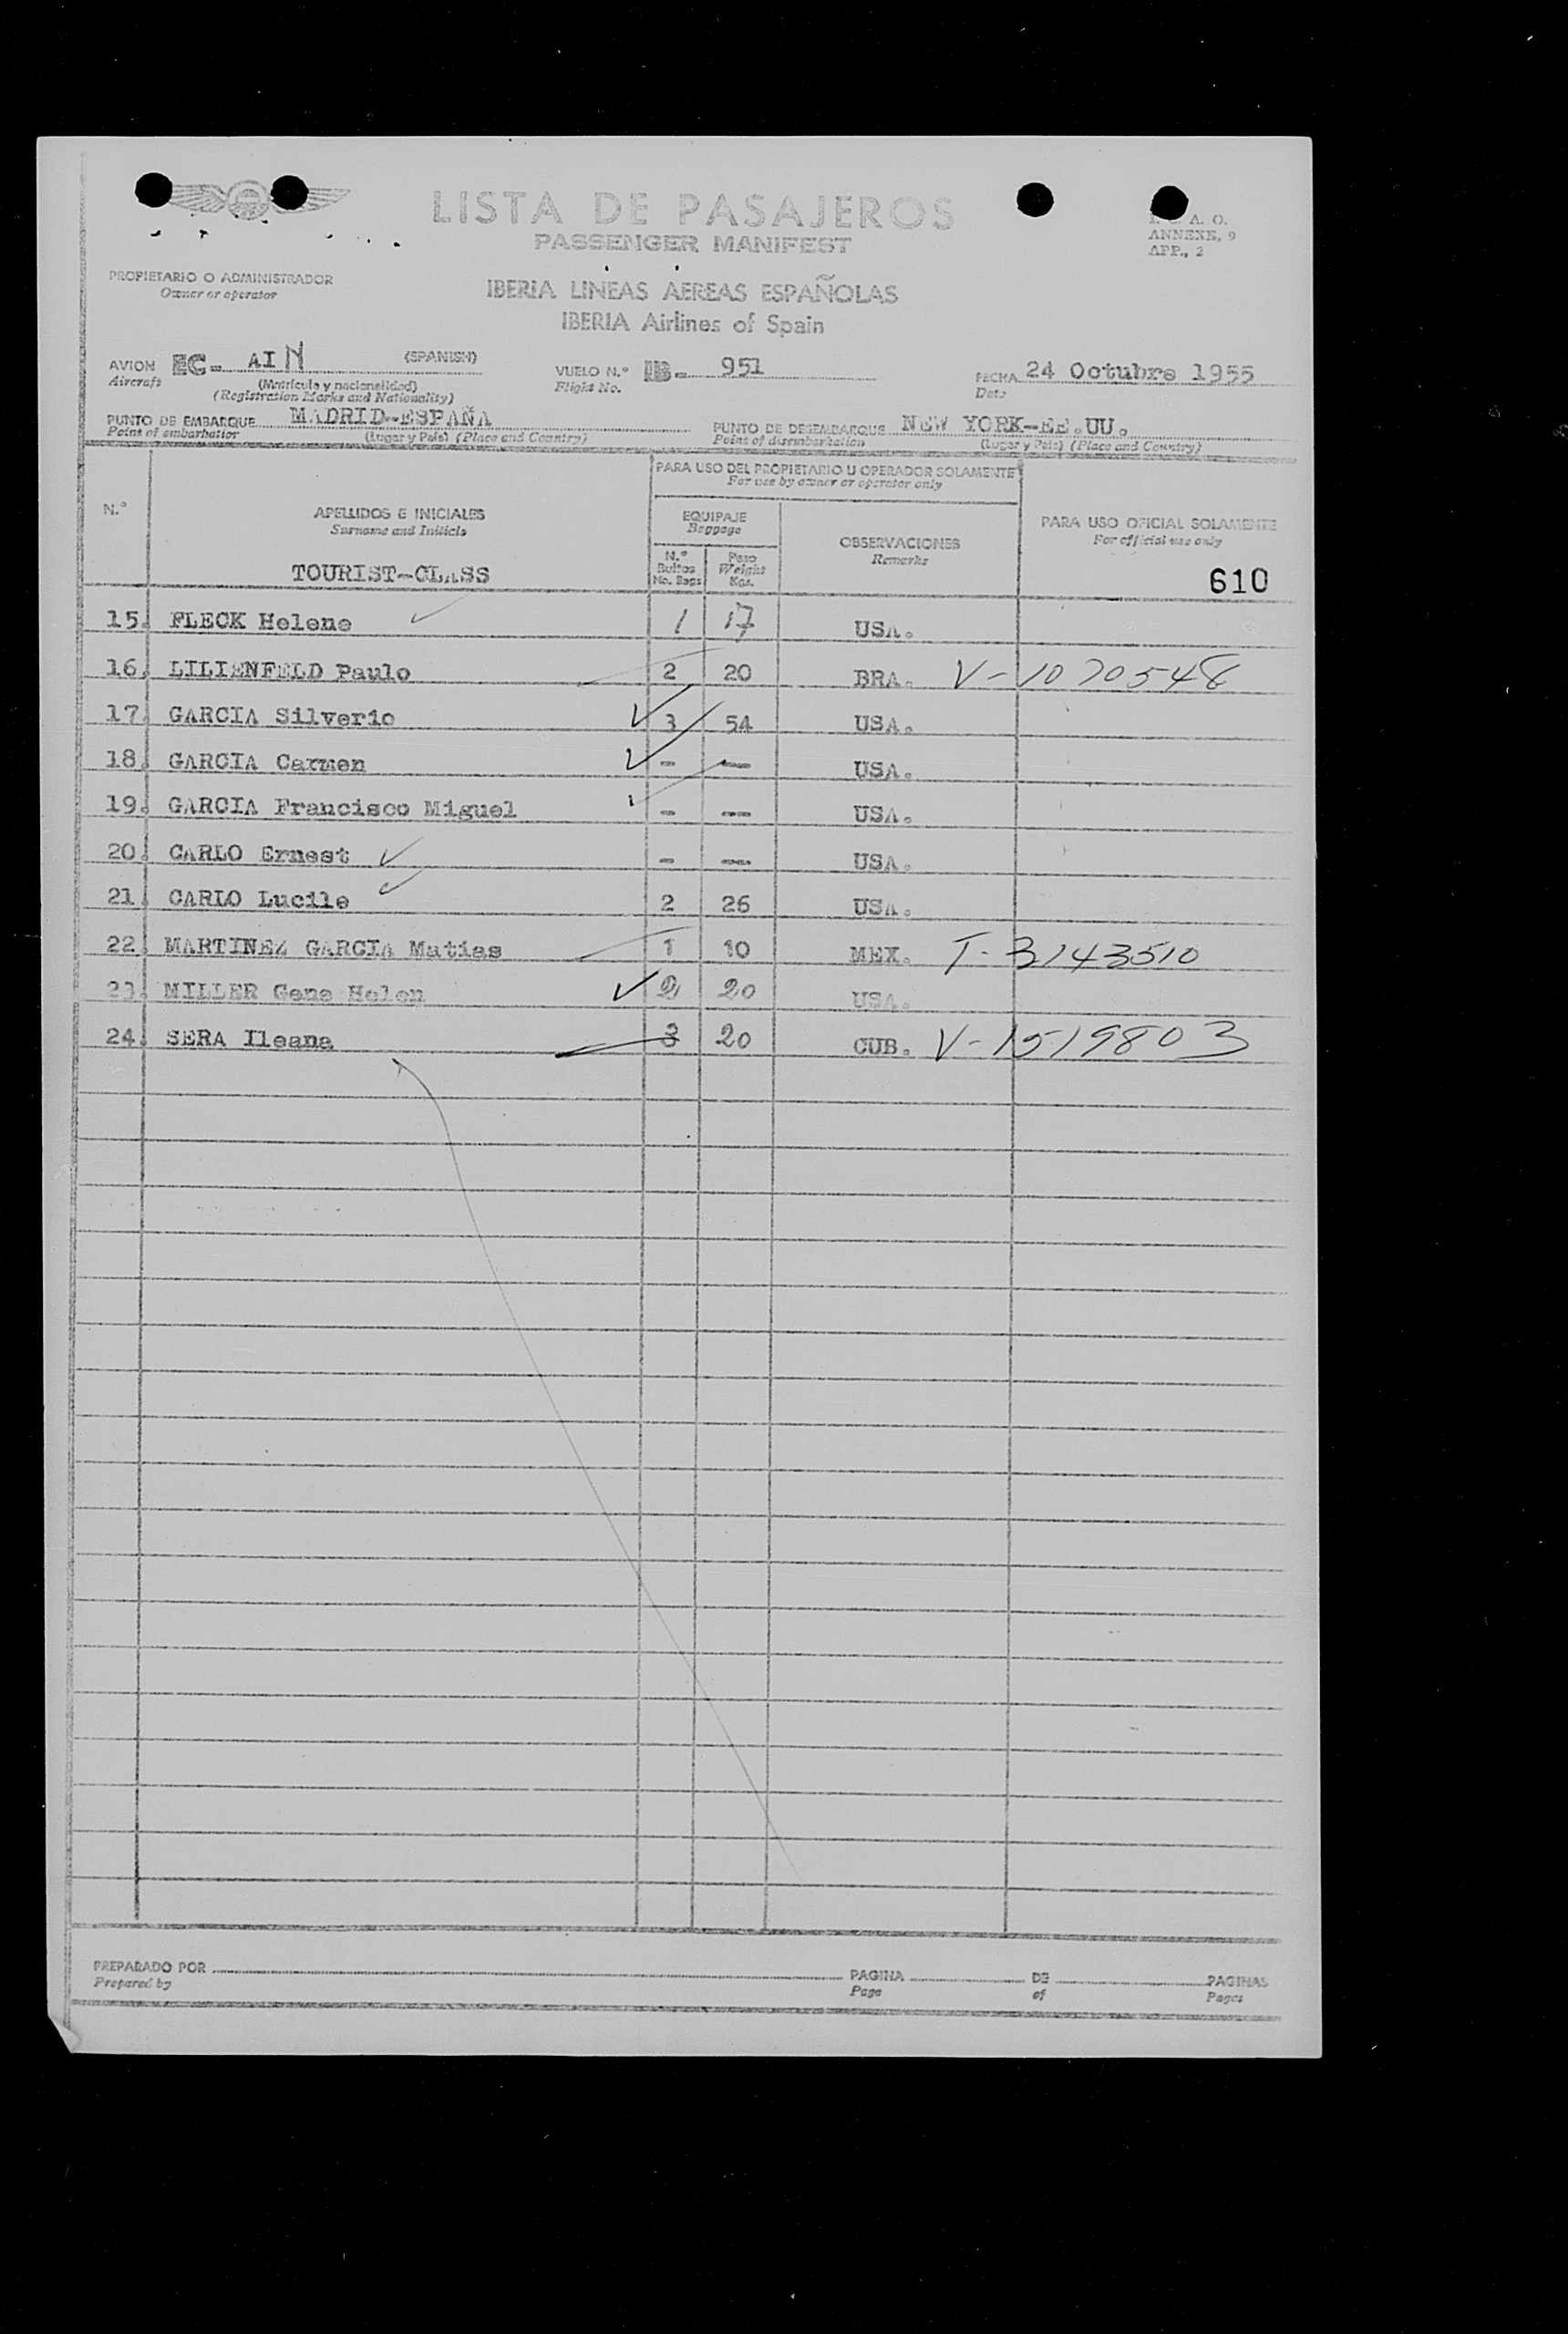 LISTA DE PASAJEROS
PASSENGER MANIFEST
A. O.
ANNEXE, 9
APP., 2
PROPIETARIO O ADMINISTRADOR
Owner or operator
IBERIA LINEAS AEREAS ESPAÑOLAS
IBERIA Airlines of Spain
AVION EC- AIN (SPANISH)
Aircraft
(Matrícula y nacionalidad)
(Registration Marks and Nationality)
VUELO N.º IB- 951
Flight No.
FECHA 24 Octubre 1955
Date
PUNTO DE EMBARQUE MADRID-ESPAÑA
Point of embarkation (Lugar y País) (Place and Country)
PUNTO DE DESEMBARQUE NEW YORK-EE.UU.
Point of disembarkation (Lugar y País) (Place and Country)
N.º
APELLIDOS E INICIALES
Surname and Initials
TOURIST-CLASS
PARA USO DEL PROPIETARIO U OPERADOR SOLAMENTE
For use by owner or operator only
EQUIPAJE
Baggage
N.º Bultos No. Bags
Peso Weight Kgs.
OBSERVACIONES
Remarks
PARA USO OFICIAL SOLAMENTE
For official use only
610
15. FLECK Helene 1 17 USA.
16. LILIENFELD Paulo 2 20 BRA. V-1070548
17. GARCIA Silverio 3 54 USA.
18. GARCIA Carmen - -- USA.
19. GARCIA Francisco Miguel - -- USA.
20. CARLO Ernest - -- USA.
21. CARLO Lucile 2 26 USA.
22. MARTINEZ GARCIA Matias 1 10 MEX. T-3143510
23. MILLER Gene Helen 2 20 USA.
24. SERA Ileana 3 20 CUB. V-1519803
PREPARADO POR
Prepared by
PAGINA DE PAGINAS
Page of Pages